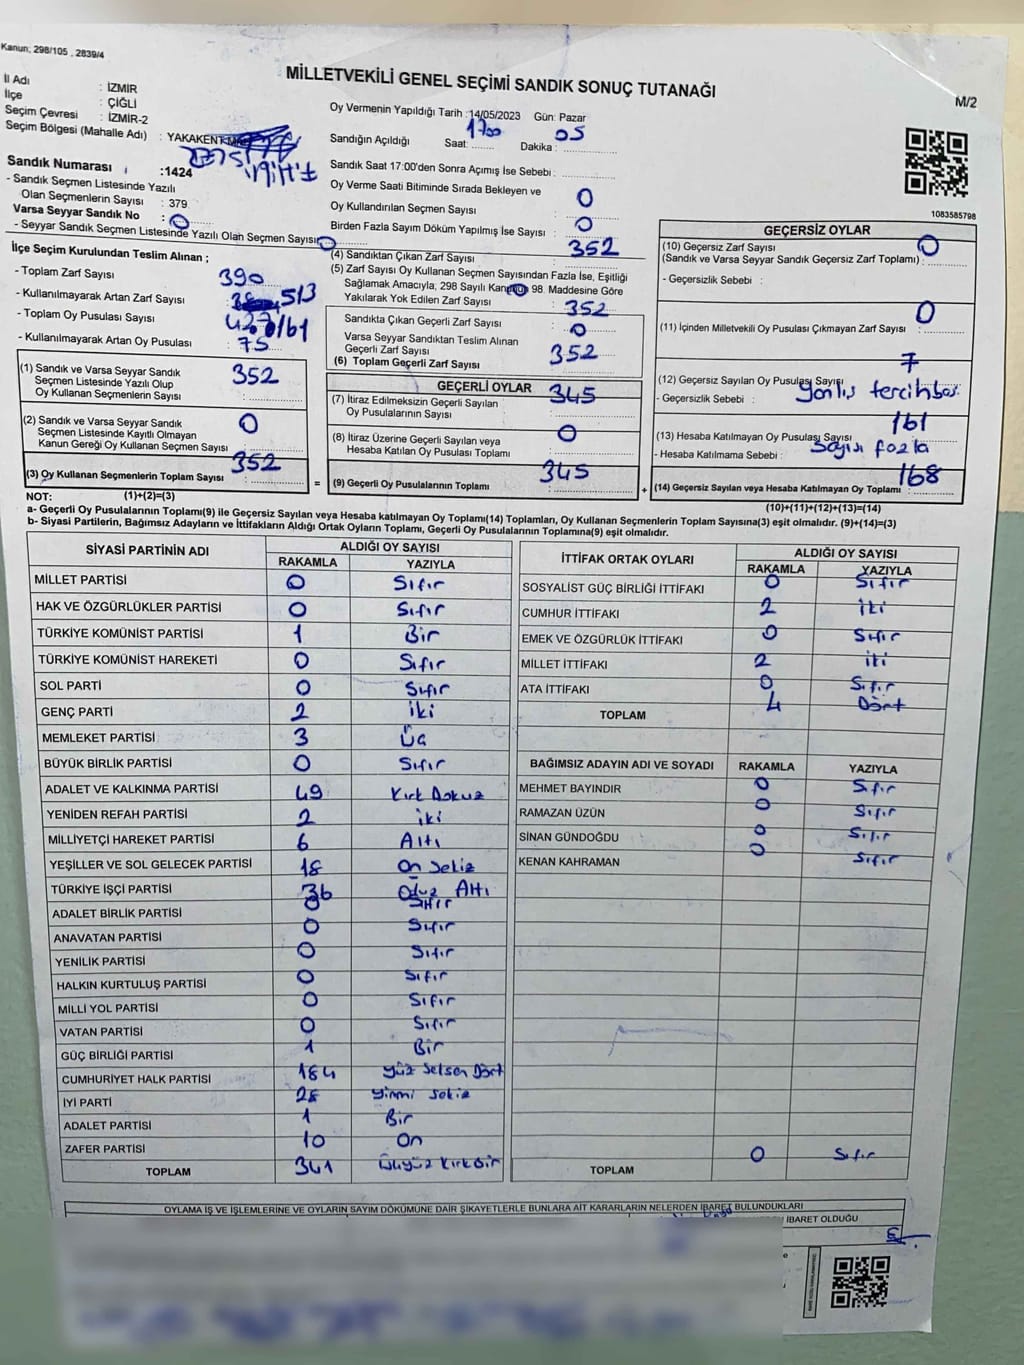 Kanun; 298/105 , 2839/4
MİLLETVEKİLİ GENEL SEÇİMİ SANDIK SONUÇ TUTANAĞI
M/2
İl Adı : İZMİR
İlçe : ÇİĞLİ
Seçim Çevresi : İZMİR-2
Seçim Bölgesi (Mahalle Adı) : YAKAKENT
Sandık Numarası :1424
- Sandık Seçmen Listesinde Yazılı
Olan Seçmenlerin Sayısı : 379
Varsa Seyyar Sandık No : 0
- Seyyar Sandık Seçmen Listesinde Yazılı Olan Seçmen Sayısı: 0
Oy Vermenin Yapıldığı Tarih :14/05/2023 Gün: Pazar
Sandığın Açıldığı Saat: 1700 Dakika : 05
Sandık Saat 17:00'den Sonra Açımış İse Sebebi :
Oy Verme Saati Bitiminde Sırada Bekleyen ve
Oy Kullandırılan Seçmen Sayısı : 0
Birden Fazla Sayım Döküm Yapılmış İse Sayısı : 0
1083585798
İlçe Seçim Kurulundan Teslim Alınan ;
- Toplam Zarf Sayısı 390
- Kullanılmayarak Artan Zarf Sayısı
- Toplam Oy Pusulası Sayısı
- Kullanılmayarak Artan Oy Pusulası : 75
(1) Sandık ve Varsa Seyyar Sandık
Seçmen Listesinde Yazılı Olup
Oy Kullanan Seçmenlerin Sayısı 352
(2) Sandık ve Varsa Seyyar Sandık
Seçmen Listesinde Kayıtlı Olmayan
Kanun Gereği Oy Kullanan Seçmen Sayısı 0
(3) Oy Kullanan Seçmenlerin Toplam Sayısı : 352
(4) Sandıktan Çıkan Zarf Sayısı : 352
(5) Zarf Sayısı Oy Kullanan Seçmen Sayısından Fazla İse, Eşitliği
Sağlamak Amacıyla, 298 Sayılı Kanunun 98. Maddesine Göre
Yakılarak Yok Edilen Zarf Sayısı : 0
Sandıkta Çıkan Geçerli Zarf Sayısı : 352
Varsa Seyyar Sandıktan Teslim Alınan
Geçerli Zarf Sayısı : 0
(6) Toplam Geçerli Zarf Sayısı : 352
=
GEÇERLİ OYLAR
(7) İtiraz Edilmeksizin Geçerli Sayılan
Oy Pusulalarının Sayısı : 345
(8) İtiraz Üzerine Geçerli Sayılan veya
Hesaba Katılan Oy Pusulası Toplamı : 0
(9) Geçerli Oy Pusulalarının Toplamı : 345
+
GEÇERSİZ OYLAR
(10) Geçersiz Zarf Sayısı 0
(Sandık ve Varsa Seyyar Sandık Geçersiz Zarf Toplamı) :
- Geçersizlik Sebebi :
(11) İçinden Milletvekili Oy Pusulası Çıkmayan Zarf Sayısı : 0
(12) Geçersiz Sayılan Oy Pusulası Sayısı 7
- Geçersizlik Sebebi : yanlış tercih
(13) Hesaba Katılmayan Oy Pusulası Sayısı 161
- Hesaba Katılmama Sebebi : sayısı fazla
(14) Geçersiz Sayılan veya Hesaba Katılmayan Oy Toplamı : 168
NOT: (1)+(2)=(3)
(10)+(11)+(12)+(13)=(14)
a- Geçerli Oy Pusulalarının Toplamı(9) ile Geçersiz Sayılan veya Hesaba katılmayan Oy Toplamı(14) Toplamları, Oy Kullanan Seçmenlerin Toplam Sayısına(3) eşit olmalıdır. (9)+(14)=(3)
b- Siyasi Partilerin, Bağımsız Adayların ve İttifakların Aldığı Ortak Oyların Toplamı, Geçerli Oy Pusulalarının Toplamına(9) eşit olmalıdır.
SİYASİ PARTİNİN ADI ALDIĞI OY SAYISI
RAKAMLA YAZIYLA
MİLLET PARTİSİ 0 Sıfır
HAK VE ÖZGÜRLÜKLER PARTİSİ 0 Sıfır
TÜRKİYE KOMÜNİST PARTİSİ 1 Bir
TÜRKİYE KOMÜNİST HAREKETİ 0 Sıfır
SOL PARTİ 0 Sıfır
GENÇ PARTİ 2 iki
MEMLEKET PARTİSİ 3 Üç
BÜYÜK BİRLİK PARTİSİ 0 Sıfır
ADALET VE KALKINMA PARTİSİ 49 Kırk Dokuz
YENİDEN REFAH PARTİSİ 2 iki
MİLLİYETÇİ HAREKET PARTİSİ 6 Altı
YEŞİLLER VE SOL GELECEK PARTİSİ 18 On Sekiz
TÜRKİYE İŞÇİ PARTİSİ 36 Otuz Altı
ADALET BİRLİK PARTİSİ 0 Sıfır
ANAVATAN PARTİSİ 0 Sıfır
YENİLİK PARTİSİ 0 Sıfır
HALKIN KURTULUŞ PARTİSİ 0 Sıfır
MİLLİ YOL PARTİSİ 0 Sıfır
VATAN PARTİSİ 0 Sıfır
GÜÇ BİRLİĞİ PARTİSİ 1 Bir
CUMHURİYET HALK PARTİSİ 184 yüz Seksen Dört
İYİ PARTİ 28 yirmi sekiz
ADALET PARTİSİ 1 Bir
ZAFER PARTİSİ 10 On
TOPLAM 341 Üçyüz Kırk Bir
İTTİFAK ORTAK OYLARI ALDIĞI OY SAYISI
RAKAMLA YAZIYLA
SOSYALİST GÜÇ BİRLİĞİ İTTİFAKI 0 Sıfır
CUMHUR İTTİFAKI 2 iki
EMEK VE ÖZGÜRLÜK İTTİFAKI 0 Sıfır
MİLLET İTTİFAKI 2 iki
ATA İTTİFAKI 0 Sıfır
TOPLAM 4 Dört
BAĞIMSIZ ADAYIN ADI VE SOYADI RAKAMLA YAZIYLA
MEHMET BAYINDIR 0 Sıfır
RAMAZAN ÜZÜN 0 Sıfır
SİNAN GÜNDOĞDU 0 Sıfır
KENAN KAHRAMAN 0 Sıfır
TOPLAM 0 Sıfır
OYLAMA İŞ VE İŞLEMLERİNE VE OYLARIN SAYIM DÖKÜMÜNE DAİR ŞİKAYETLERLE BUNLARA AİT KARARLARIN NELERDEN İBARET BULUNDUKLARI
İBARET OLDUĞU